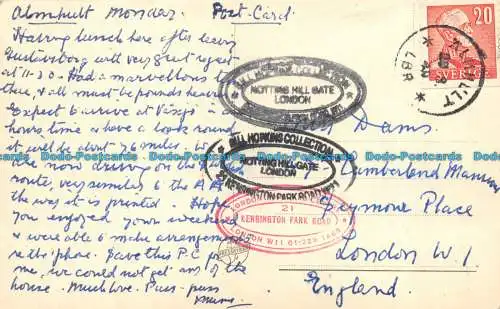 Almhult Monday. Post-Card
Having lunch here after leaving
with very great regret
at 11-30. Had a marvellous time
there, & all must be pounds heavier.
Expect to arrive at
hours time & have a look round
it will be about 76 miles. We
now driving on the
route, very similar to the A.A.
the way it is printed. Hope
you enjoyed your weekend
& were able to make arrangements
re the 'phone. Save this P.C. for
me, we could not get any of the
house. Much love. Puss-puss
Dams
Cumberland Mansions
Seymour Place
London W.1.
England.
20
SVERIGE
LBR
BILL HOPKINS COLLECTION
NOTTING HILL GATE
LONDON
BILL HOPKINS COLLECTION
NOTTING HILL GATE
LONDON
21 KENSINGTON PARK ROAD W11
LONDON
21
KENSINGTON PARK ROAD
LONDON W11 01-
Dodo-Postcards Dodo-Postcards Dodo-Postcards Dodo-Postcards Dodo-Postcards